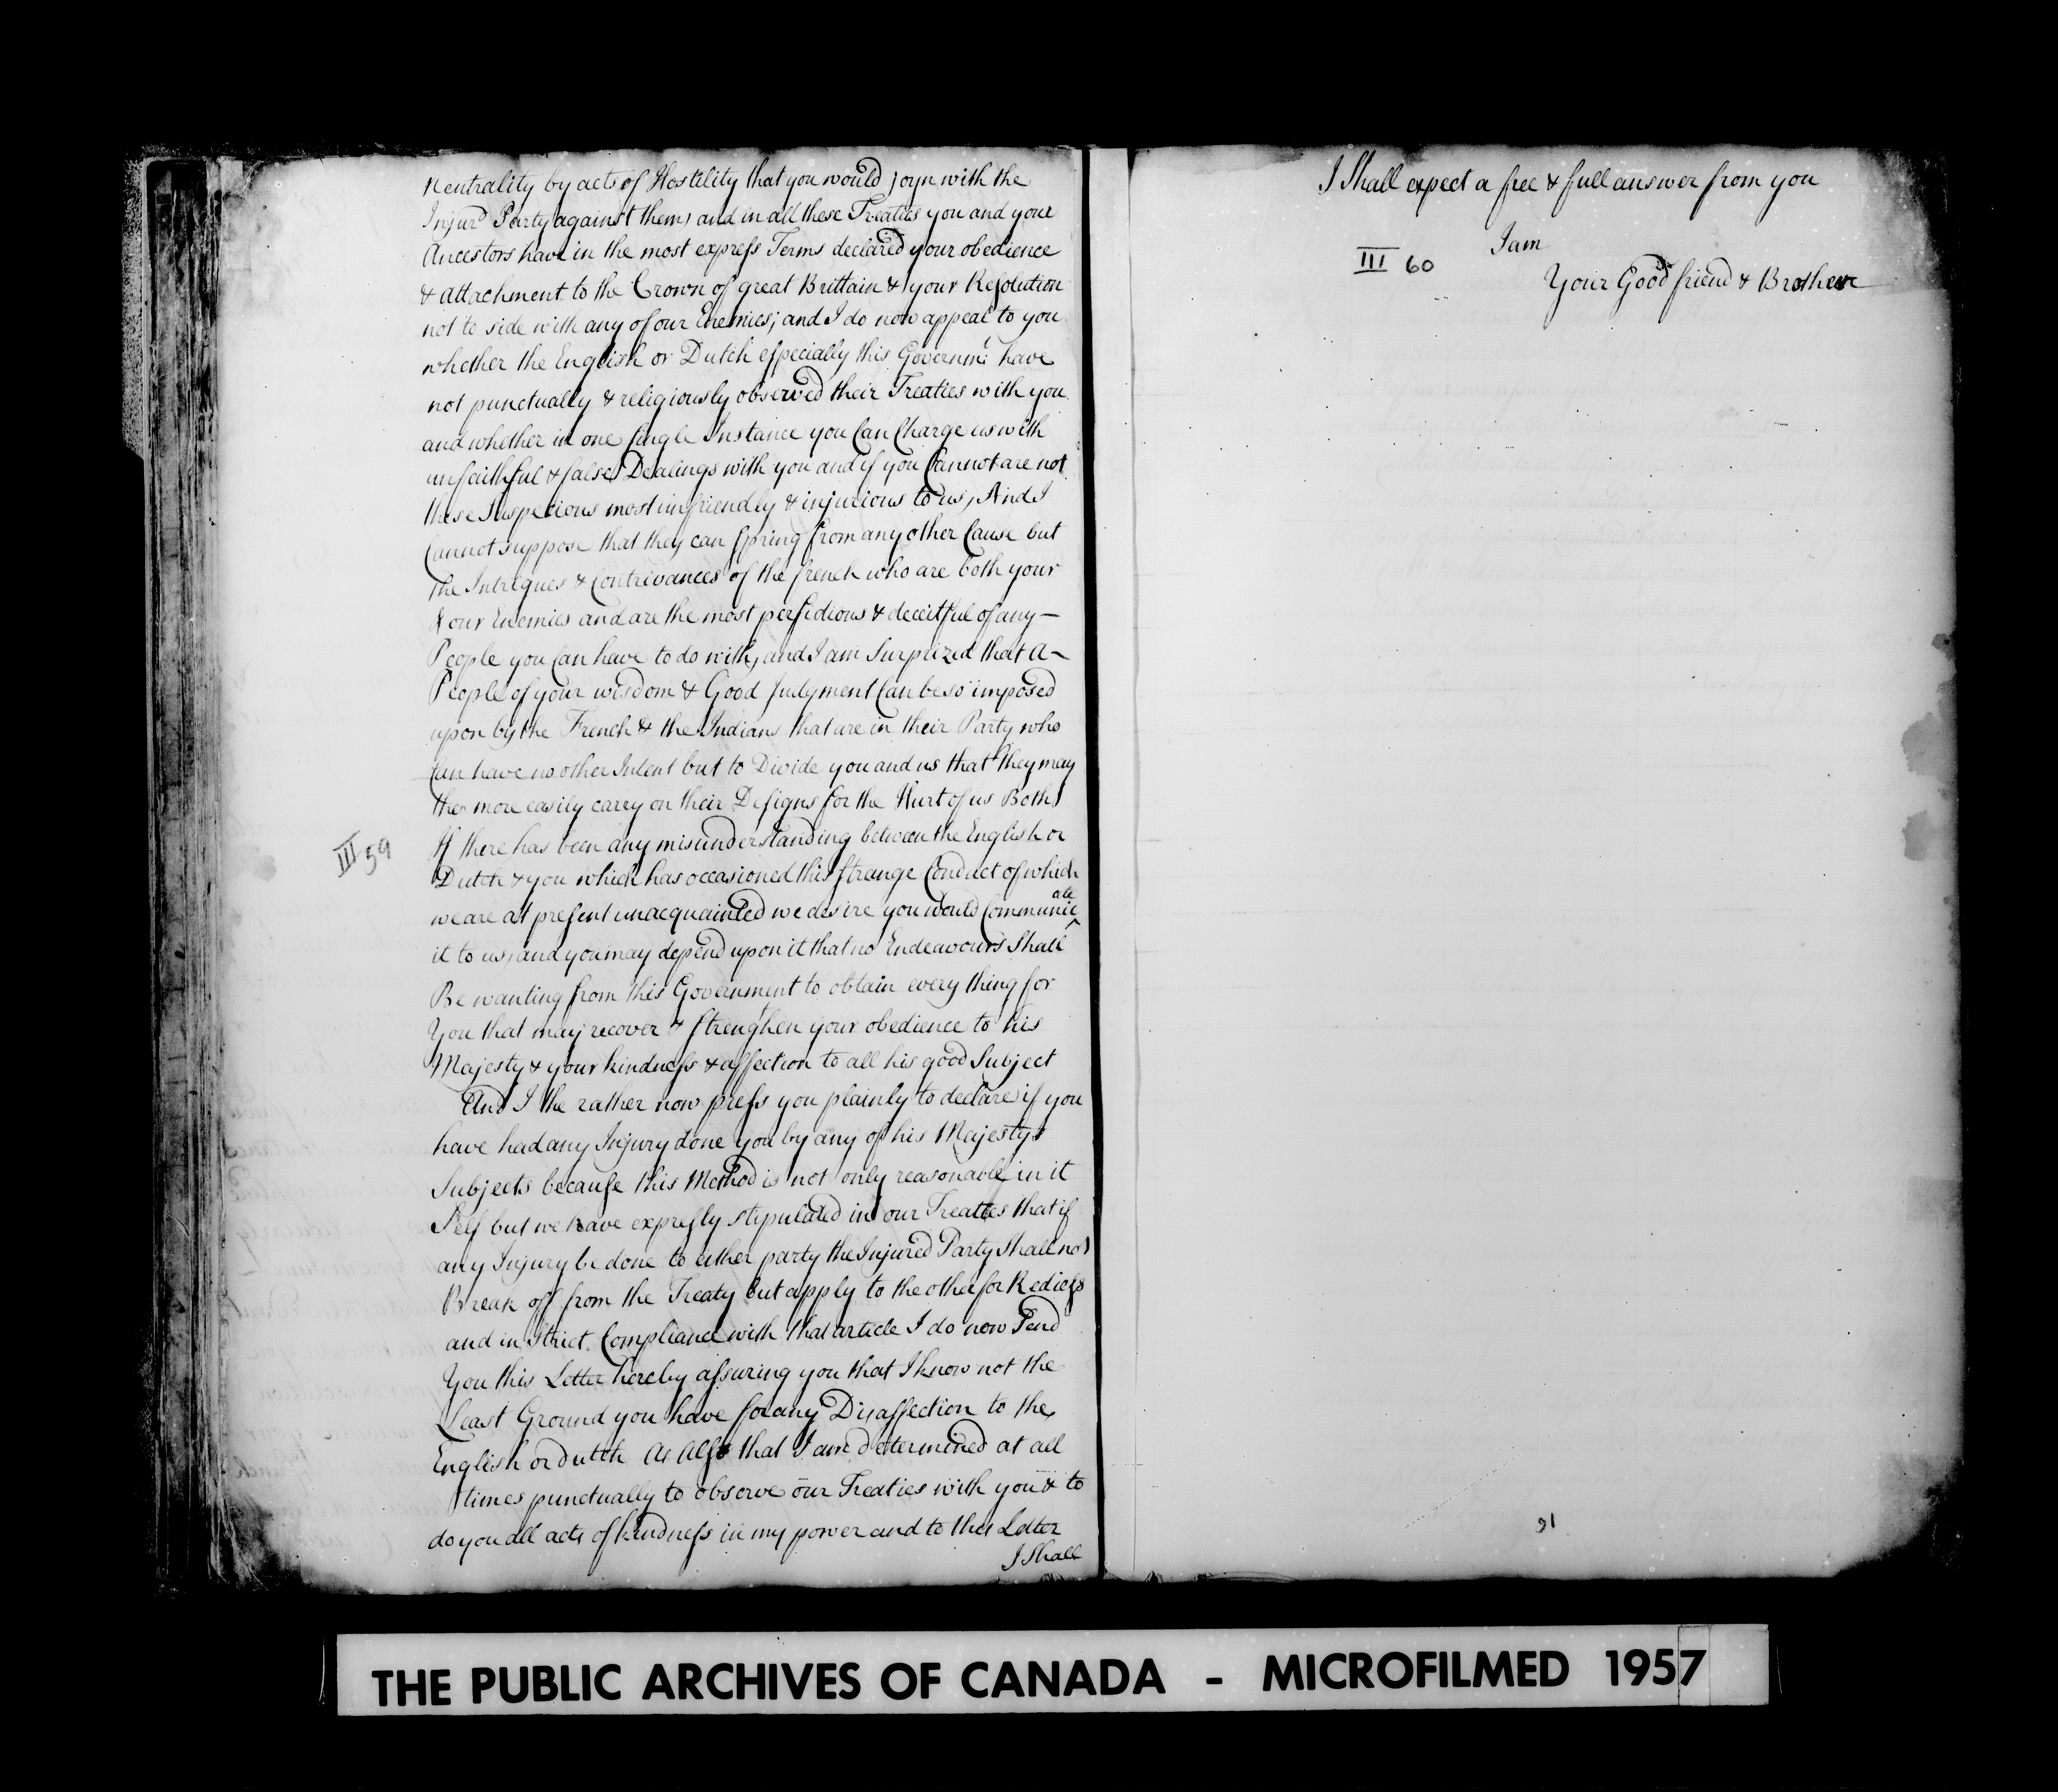 Neutrality by acts of Hostility that you would joyn with the
Injurd Party against them, and in all these Treaties you and your
Ancestors have in the most express Terms declared your obedience
& attachment to the Crown of great Brittain & your Resolution
not to side with any of our Enemies; and I do now appeal to you
whether the English or Dutch especially this Governmt have
not punctually & religiously observed their Treaties with you
and whether in one single Instance you Can Charge us with
unfaithful & false Dealings with you and if you Cannot are not
these Suspecions most unfriendly & injurious to us, And I
Cannot suppose that they can Spring from any other Cause but
the Intrigues & Contrivances of the french who are both your
& our Enemies and are the most perfidious & deceitful of any —
People you Can have to do with, and I am Surprized that a
People of your wisdom & Good Judgment Can be so imposed
upon by the French & the Indians that are in their Party who
Can have no other Intent but to Divide you and us that they may
the more easily carry on their Designs for the Hurt of us Both
III 59
If there has been any misunderstanding between the English or
Dutch & you which has occasioned this strange Conduct of which
we are at present unacquainted we desire you would Communicate
it to us, and you may depend upon it that no Endeavours Shall
Be wanting from this Government to obtain every thing for
You that may recover & strengthen your obedience to his
Majesty & your kindness & affection to all his good Subject
And I the rather now press you plainly to declare if you
have had any Injury done you by any of his Majestys
Subjects because this Method is not only reasonable in it
Self but we have expressly stipulated in our Treatties that if
any Injury be done to either party the Injured Party Shall not
Break off from the Treaty but apply to the other for Redress
and in Strict Compliance with that article I do now Send
You this Letter hereby assuring you that I know not the
Least Ground you have for any Disaffection to the
English or dutch As Also that I am determined at all
times punctually to observe our Treaties with you & to
do you all acts of kindness in my power and to this Letter
I Shall
I Shall expect a free & full answer from you
I am
III 60
Your Good friend & Brother
91
THE PUBLIC ARCHIVES OF CANADA - MICROFILMED 1957